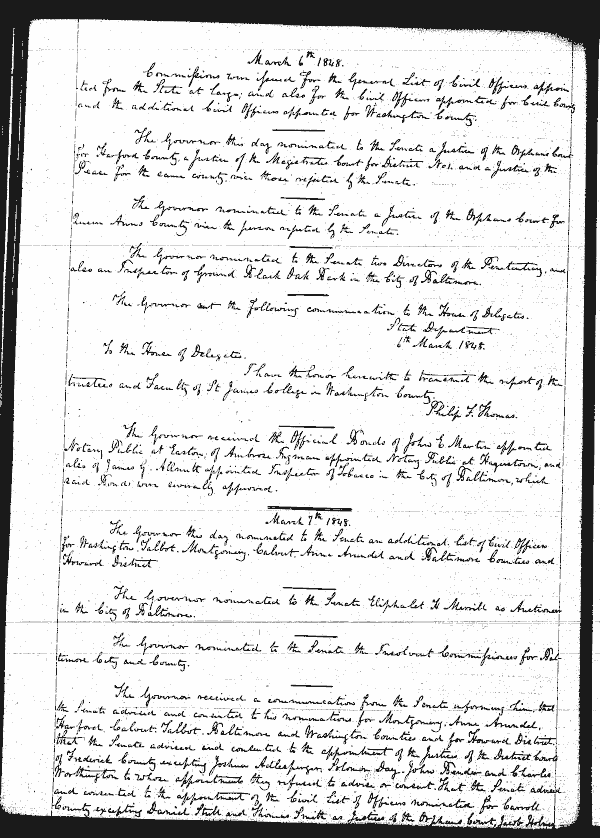 March 6th 1848.
Commissions were issued for the General List of Civil Officers appoin
ted from the State at large, and also for the Civil Officers appointed for Cecil County
and the additional Civil Officers appointed for Washington County.
The Governor this day nominated to the Senate a Justice of the Orphans Court
for Harford County, a Justice of the Magistrates Court for District No1. and a Justice of the
Peace for the same county, vice those rejected by the Senate.
The Governor nominated to the Senate a Justice of the Orphans Court for
Queen Anns County vice the person rejected by the Senate.
The Governor nominated to the Senate two Directors of the Penitentiary, and
also an Inspector of Ground Black Oak Bark in the City of Baltimore.
The Governor sent the following communication to the House of Delegates.
State Department
6th March 1848.
To the House of Delegates.
I have the honor herewith to transmit the report of the
trustees and Faculty of St James College in Washington County
Philip F. Thomas.
The Governor received the Official Bonds of John E Martin appointed
Notary Public at Easton, of Ambrose Ingram appointed Notary Public at Hagerstown, and
also of James G. appointed Inspector of Tobacco in the City of Baltimore, which
said Bonds were severally approved.
March 7th 1848.
The Governor this day nominated to the Senate an additional list of Civil Officers
for Washington, Talbot, Montgomery, Calvert, Anne Arundel and Baltimore Counties and
Howard District
The Governor nominated to the Senate Eliphalet H Merrill as Auctioneer
in the City of Baltimore.
The Governor nominated to the Senate the Insolvent Commissioners for Bal-
timore City and County.
The Governor received a communication from the Senate informing him, that
the Senate advised and consented to his nominations for Montgomery, Anne Arundel,
Harford, Calvert, Talbot, Baltimore and Washington Counties and for Howard District,
that the Senate advised and consented to the appointment of the Justices of the District Courts
of Frederick County excepting Joshua Solomon Day, John Bender and Charles
Worthington to whose appointments they refused to advise or consent. That the Senate advised
and consented to the appointment of the Civil List of Officers nominated for Carroll
County excepting Daniel Stull and Thomas Smith as Justices of the Orphans Court, Jacob Holmes